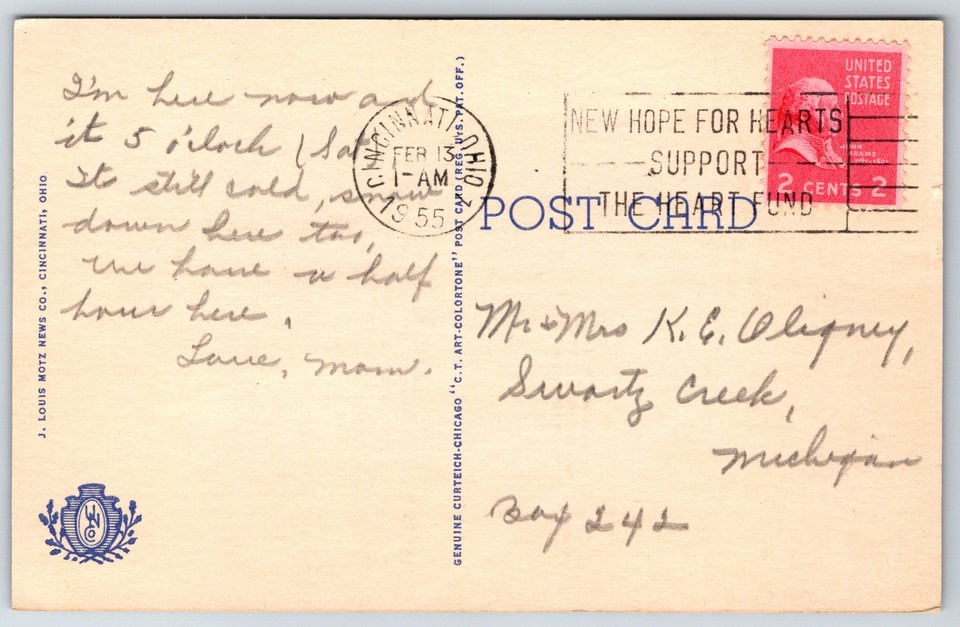 I'm here now and
it 5 o'clock (Sat
It still cold, snow
down here too,
we have a half
hour here.
Love, Mom.
J. LOUIS MOTZ NEWS CO., CINCINNATI, OHIO
GENUINE CURTEICH-CHICAGO "C.T. ART-COLORTONE" POST CARD (REG. U.S. PAT. OFF.)
CINCINNATI, OHIO 2
FEB 13
1-AM
1955
NEW HOPE FOR HEARTS
SUPPORT
THE HEART FUND
UNITED
STATES
POSTAGE
JOHN
ADAMS
2 CENTS 2
POST CARD
Mr & Mrs K. E. Oligney,
Swartz Creek,
Michigan
Box 242